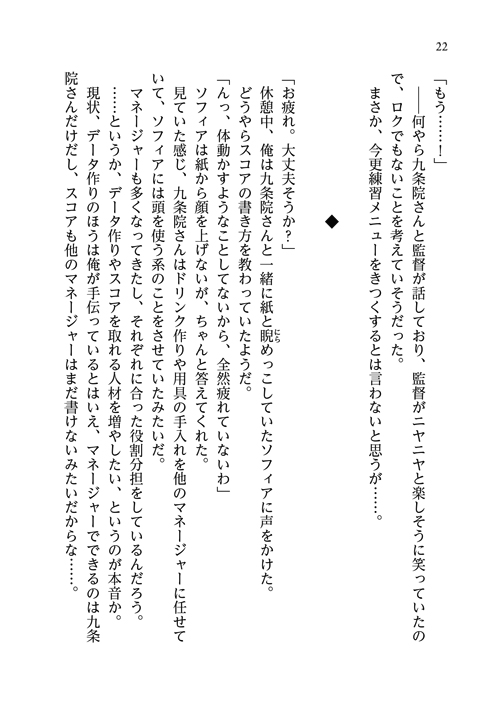 22
「もう……！」
――何やら九条院さんと監督が話しており、監督がニヤニヤと楽しそうに笑っていたの
で、ロクでもないことを考えていそうだった。
まさか、今更練習メニューをきつくするとは言わないと思うが……。
◆
「お疲れ。大丈夫そうか？」
休憩中、俺は九条院さんと一緒に紙と睨めっこしていたソフィアに声をかけた。
にら
どうやらスコアの書き方を教わっていたようだ。
「んっ、体動かすようなことしてないから、全然疲れていないわ」
ソフィアは紙から顔を上げないが、ちゃんと答えてくれた。
見ていた感じ、九条院さんはドリンク作りや用具の手入れを他のマネージャーに任せて
いて、ソフィアには頭を使う系のことをさせていたみたいだ。
マネージャーも多くなってきたし、それぞれに合った役割分担をしているんだろう。
……というか、データ作りやスコアを取れる人材を増やしたい、というのが本音か。
現状、データ作りのほうは俺が手伝っているとはいえ、マネージャーでできるのは九条
院さんだけだし、スコアも他のマネージャーはまだ書けないみたいだからな……。